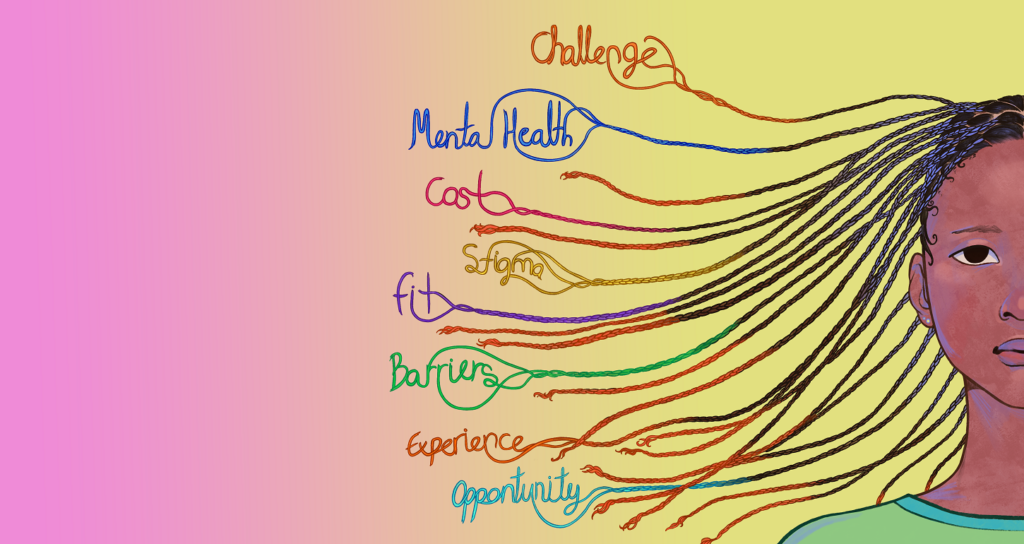 Challenge
Mental Health
Cost
Stigma
fit
Barriers
Experience
Opportunity